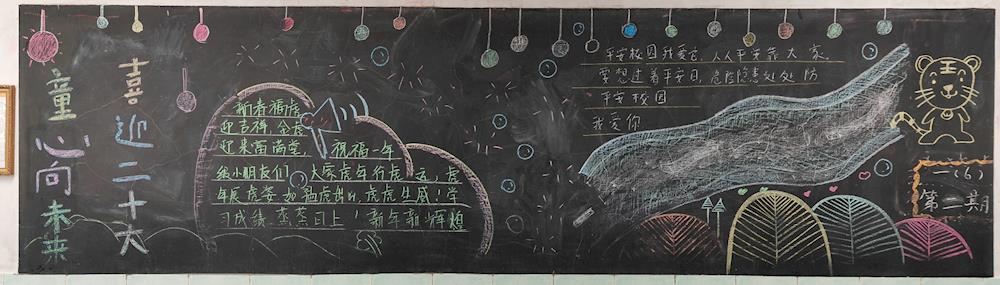 童心向未来
喜迎二十大
新春福虎
迎吉祥,金虎
迎来富满堂, 祝福一年
级小朋友们 大家虎年行虎运,虎
年展虎姿如猛虎出山,虎虎生威!学
习成绩蒸蒸日上!新年新辉煌
平安校园我爱它,人人平安靠大家,
要想过着平安日,危险隐患处处防
平安校园
我爱你
王
一(6)
第二期